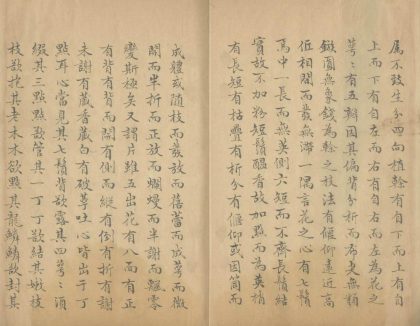 屬不致生分四向植榦有自下而上有自
上而下有自左而右有自右而左為花之
萼〻有五瓣因其偏背分析而無粗
圓無象錢為榦之枝法有偃仰遠近高
低相間而最無滯一隅言花之心有七鬚
焉中一長而無英側六短而不齊長鬚結
實故不加粉短鬚醞香故加點而為英梢
有長短有枯豐有折分有偃仰或因而
成體或隨枝而敷放而蓓蕾而成萼而微
開而半折而正放而爛熳而半謝而飄零
變斯極矣又謂片雖五出花有八而有正
有背有背而開有側而縱有側有折有謝
未謝有藏香藏白有破萼吐心皆出于丁
點耳心當見其七鬚背欲露其四萼〻須
綴其三點點欲管其一丁丁欲結其嫩枝
枝欲抱其老木木欲點其龍鱗鱗欲封其